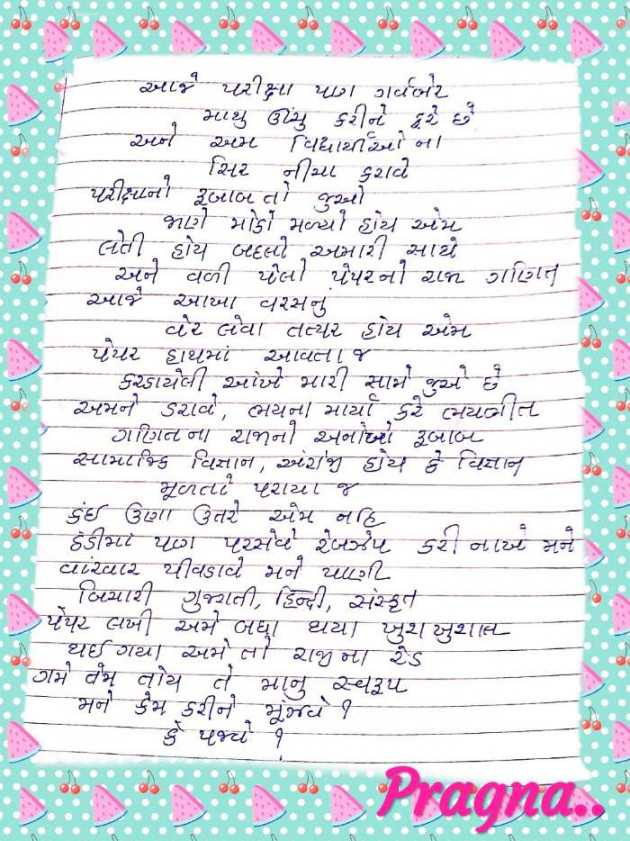 આજે પરીક્ષા પણ ગર્વભેર
માથુ ઊંચુ કરીને ફરે છે
અને અમ વિદ્યાર્થીઓ ના
સિર નીચા કરાવે
પરીક્ષાનો રૂબાબ તો જુઓ
જાણે મોકો મળ્યો હોય એમ
લેતી હોય બદલો અમારી સાથે
અને વળી પેલો પેપરનો રાજા ગણિત
આજે આખા વરસનું
વેર લેવા તત્પર હોય એમ
પેપર હાથમાં આવતા જ
કરડાયેલી આંખે મારી સામે જુએ છે
અમને ડરાવે, ભયના માર્યા કરે ભયભીત
ગણિત ના રાજાનો અનોખો રૂબાબ
સામાજિક વિજ્ઞાન, અંગ્રેજી હોય કે વિજ્ઞાન
મૂળતાં પરાયા જ
કંઈ ઉણા ઉતરે એમ નહિ
ઠંડીમાં પણ પરસેવે રેબઝેબ કરી નાખે મને
વારંવાર પીવડાવે મને પાણી
બિચારી ગુજરાતી, હિન્દી, સંસ્કૃત
પેપર લખી અમે બધા થયા ખુશખુશાલ
થઈ ગયા અમે તો રાજી ના રેડ
ગમે તેમ તોય તે માનુ સ્વરૂપ
મને કેમ કરીને મૂંઝવે ?
કે પજવે ?
Pragna..